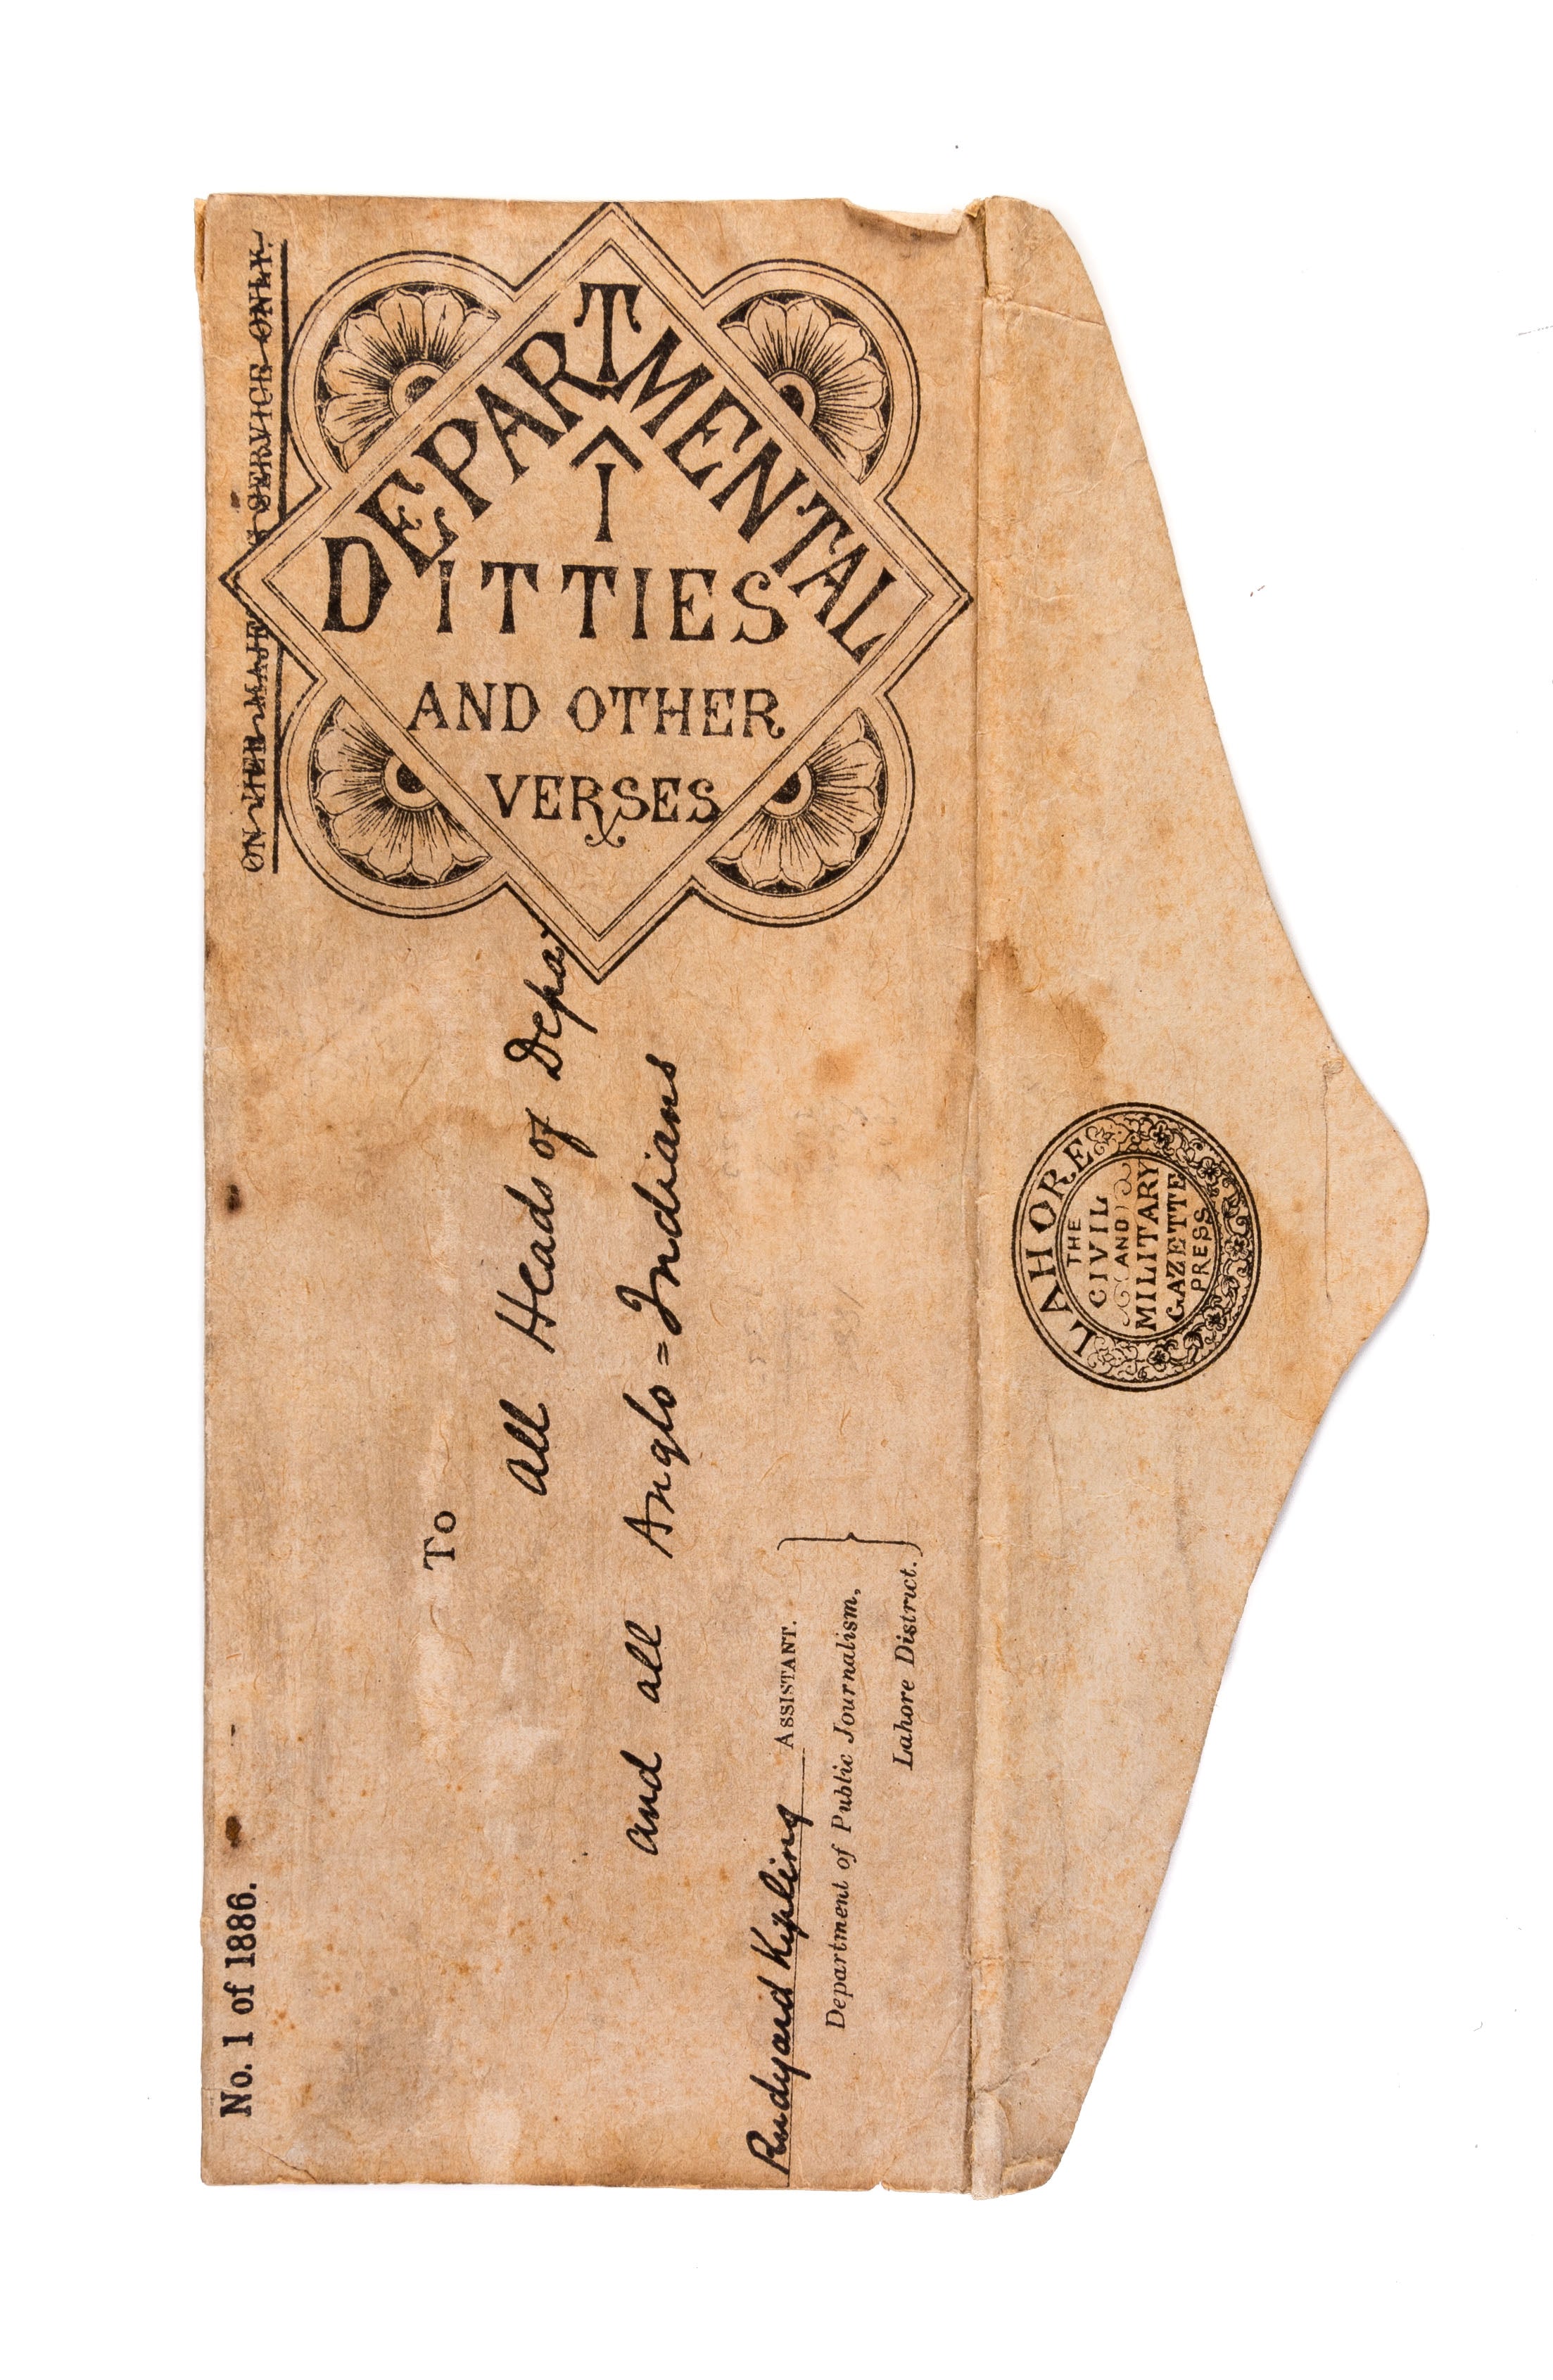 No. 1 of 1886.
ON HER MAJE S SERVICE ONLY.
DEPARTMENTAL
^
I
DITTIES
AND OTHER
VERSES
To
All Heads of Depar
and all Anglo=Indians
Rudyard Kipling ASSISTANT.
Department of Public Journalism,
Lahore District.
LAHORE
THE
CIVIL
AND
MILITARY
GAZETTE
PRESS